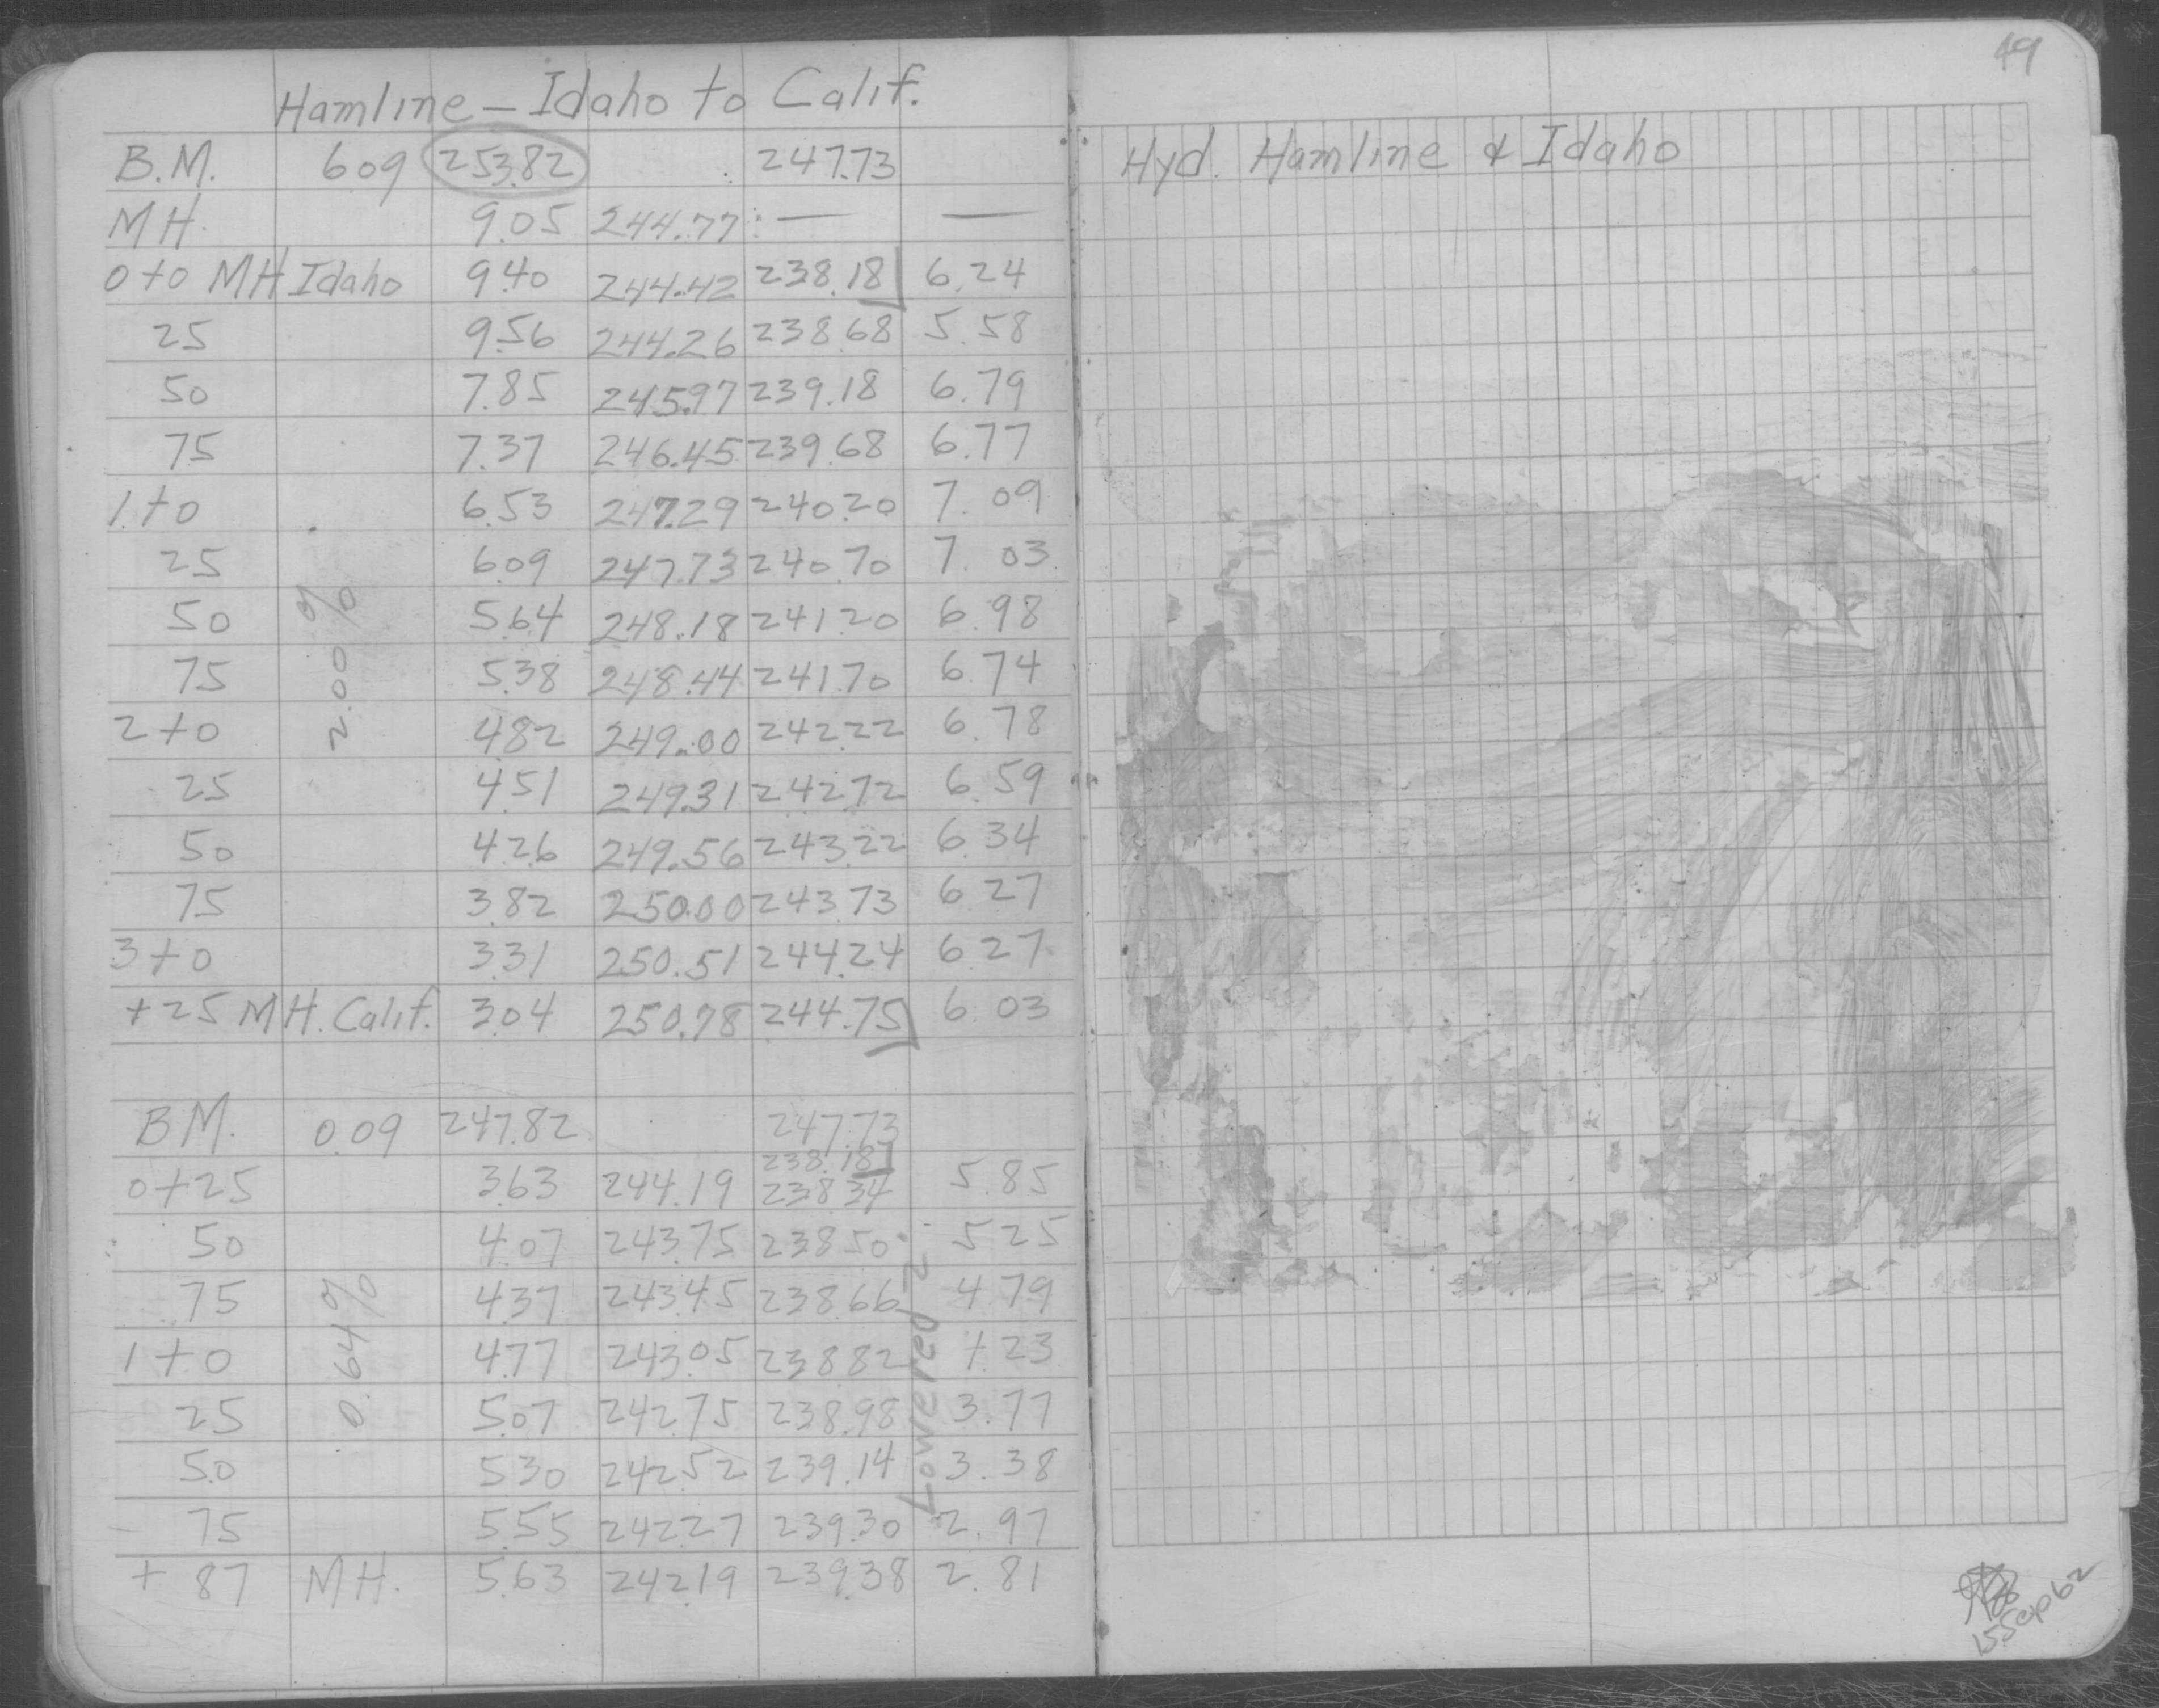 Hamline - Idaho to Calif.
B.M. 6.09 253.82 247.73
MH. 9.05 244.77 — —
0+0 MH Idaho 9.40 244.42 238.18 6.24
25 9.56 244.26 238.68 5.58
50 7.85 245.97 239.18 6.79
75 7.37 246.45 239.68 6.77
1+0 6.53 247.29 240.20 7.09
25 6.09 247.73 240.70 7.03
50 5.64 248.18 241.20 6.98
75 5.38 248.44 241.70 6.74
2.00%
2+0 4.82 249.00 242.22 6.78
25 4.51 249.31 242.72 6.59
50 4.26 249.56 243.22 6.34
75 3.82 250.00 243.73 6.27
3+0 3.31 250.51 244.24 6.27
+25 MH. Calif. 3.04 250.78 244.75 6.03
BM. 0.09 247.82 247.73
238.18
0+25 3.63 244.19 238.34 5.85
50 4.07 243.75 238.50 5.25
75 4.37 243.45 238.66 4.79
0.64%
Lowered 2
1+0 4.77 243.05 238.82 4.23
25 5.07 242.75 238.98 3.77
50 5.30 242.52 239.14 3.38
75 5.55 242.27 239.30 2.97
+87 MH. 5.63 242.19 239.38 2.81
49
Hyd. Hamline & Idaho
15 Sep 62